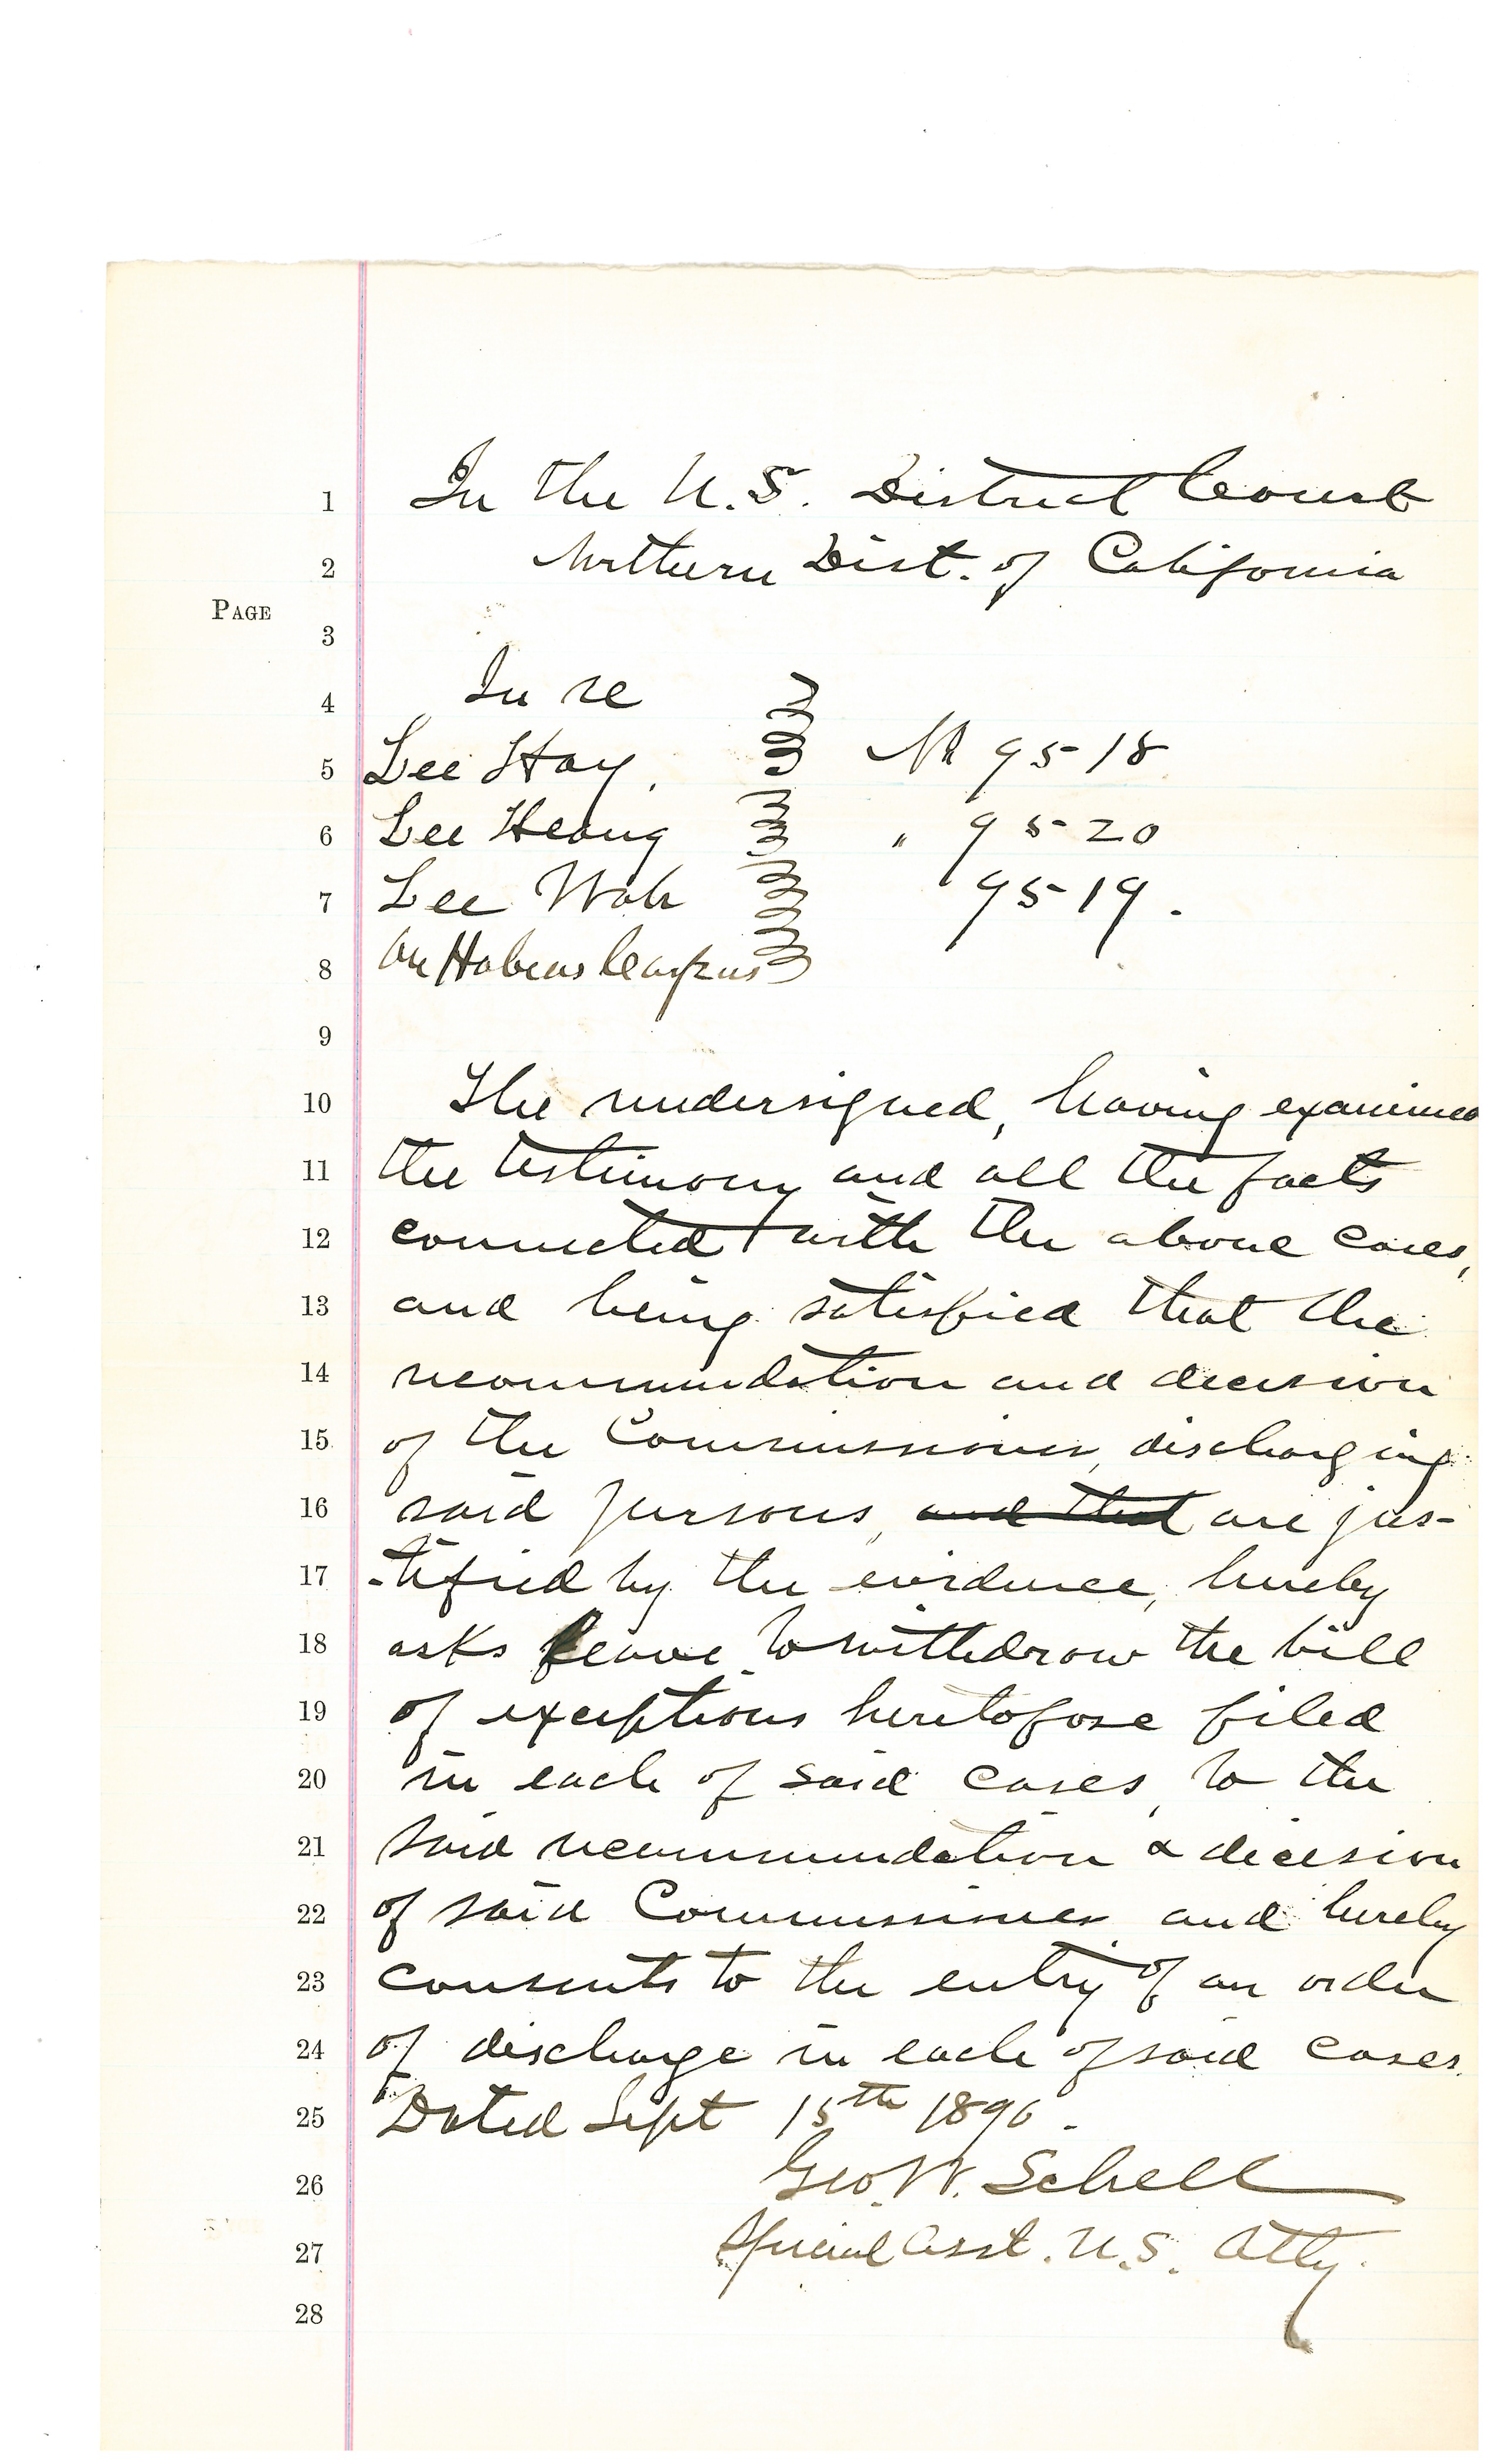 1 In the U.S. District Court
2 Northern Dist. of California
PAGE
3
4 In re
5 Lee Hoy, No 9518
6 Lee Heong " 9520
7 Lee Wah 9519.
8 On Habeas Corpus
9
10 The undersigned, having examined
11 the testimony and all the facts
12 connected with the above cases,
13 and being satisfied that the
14 recommendation and decision
15 of the Commissioner, discharging
16 said persons, and that are jus-
17 -tified by the evidence, hereby
18 asks leave to withdraw the bill
19 of exceptions heretofore filed
20 in each of said cases, to the
21 said recommendation & decision
22 of said Commissioner and hereby
23 consents to the entry of an order
24 of discharge in each of said cases.
25 Dated Sept 15th 1890.
26 Geo. W. Schell
27 Special Asst. U.S. Atty.
28